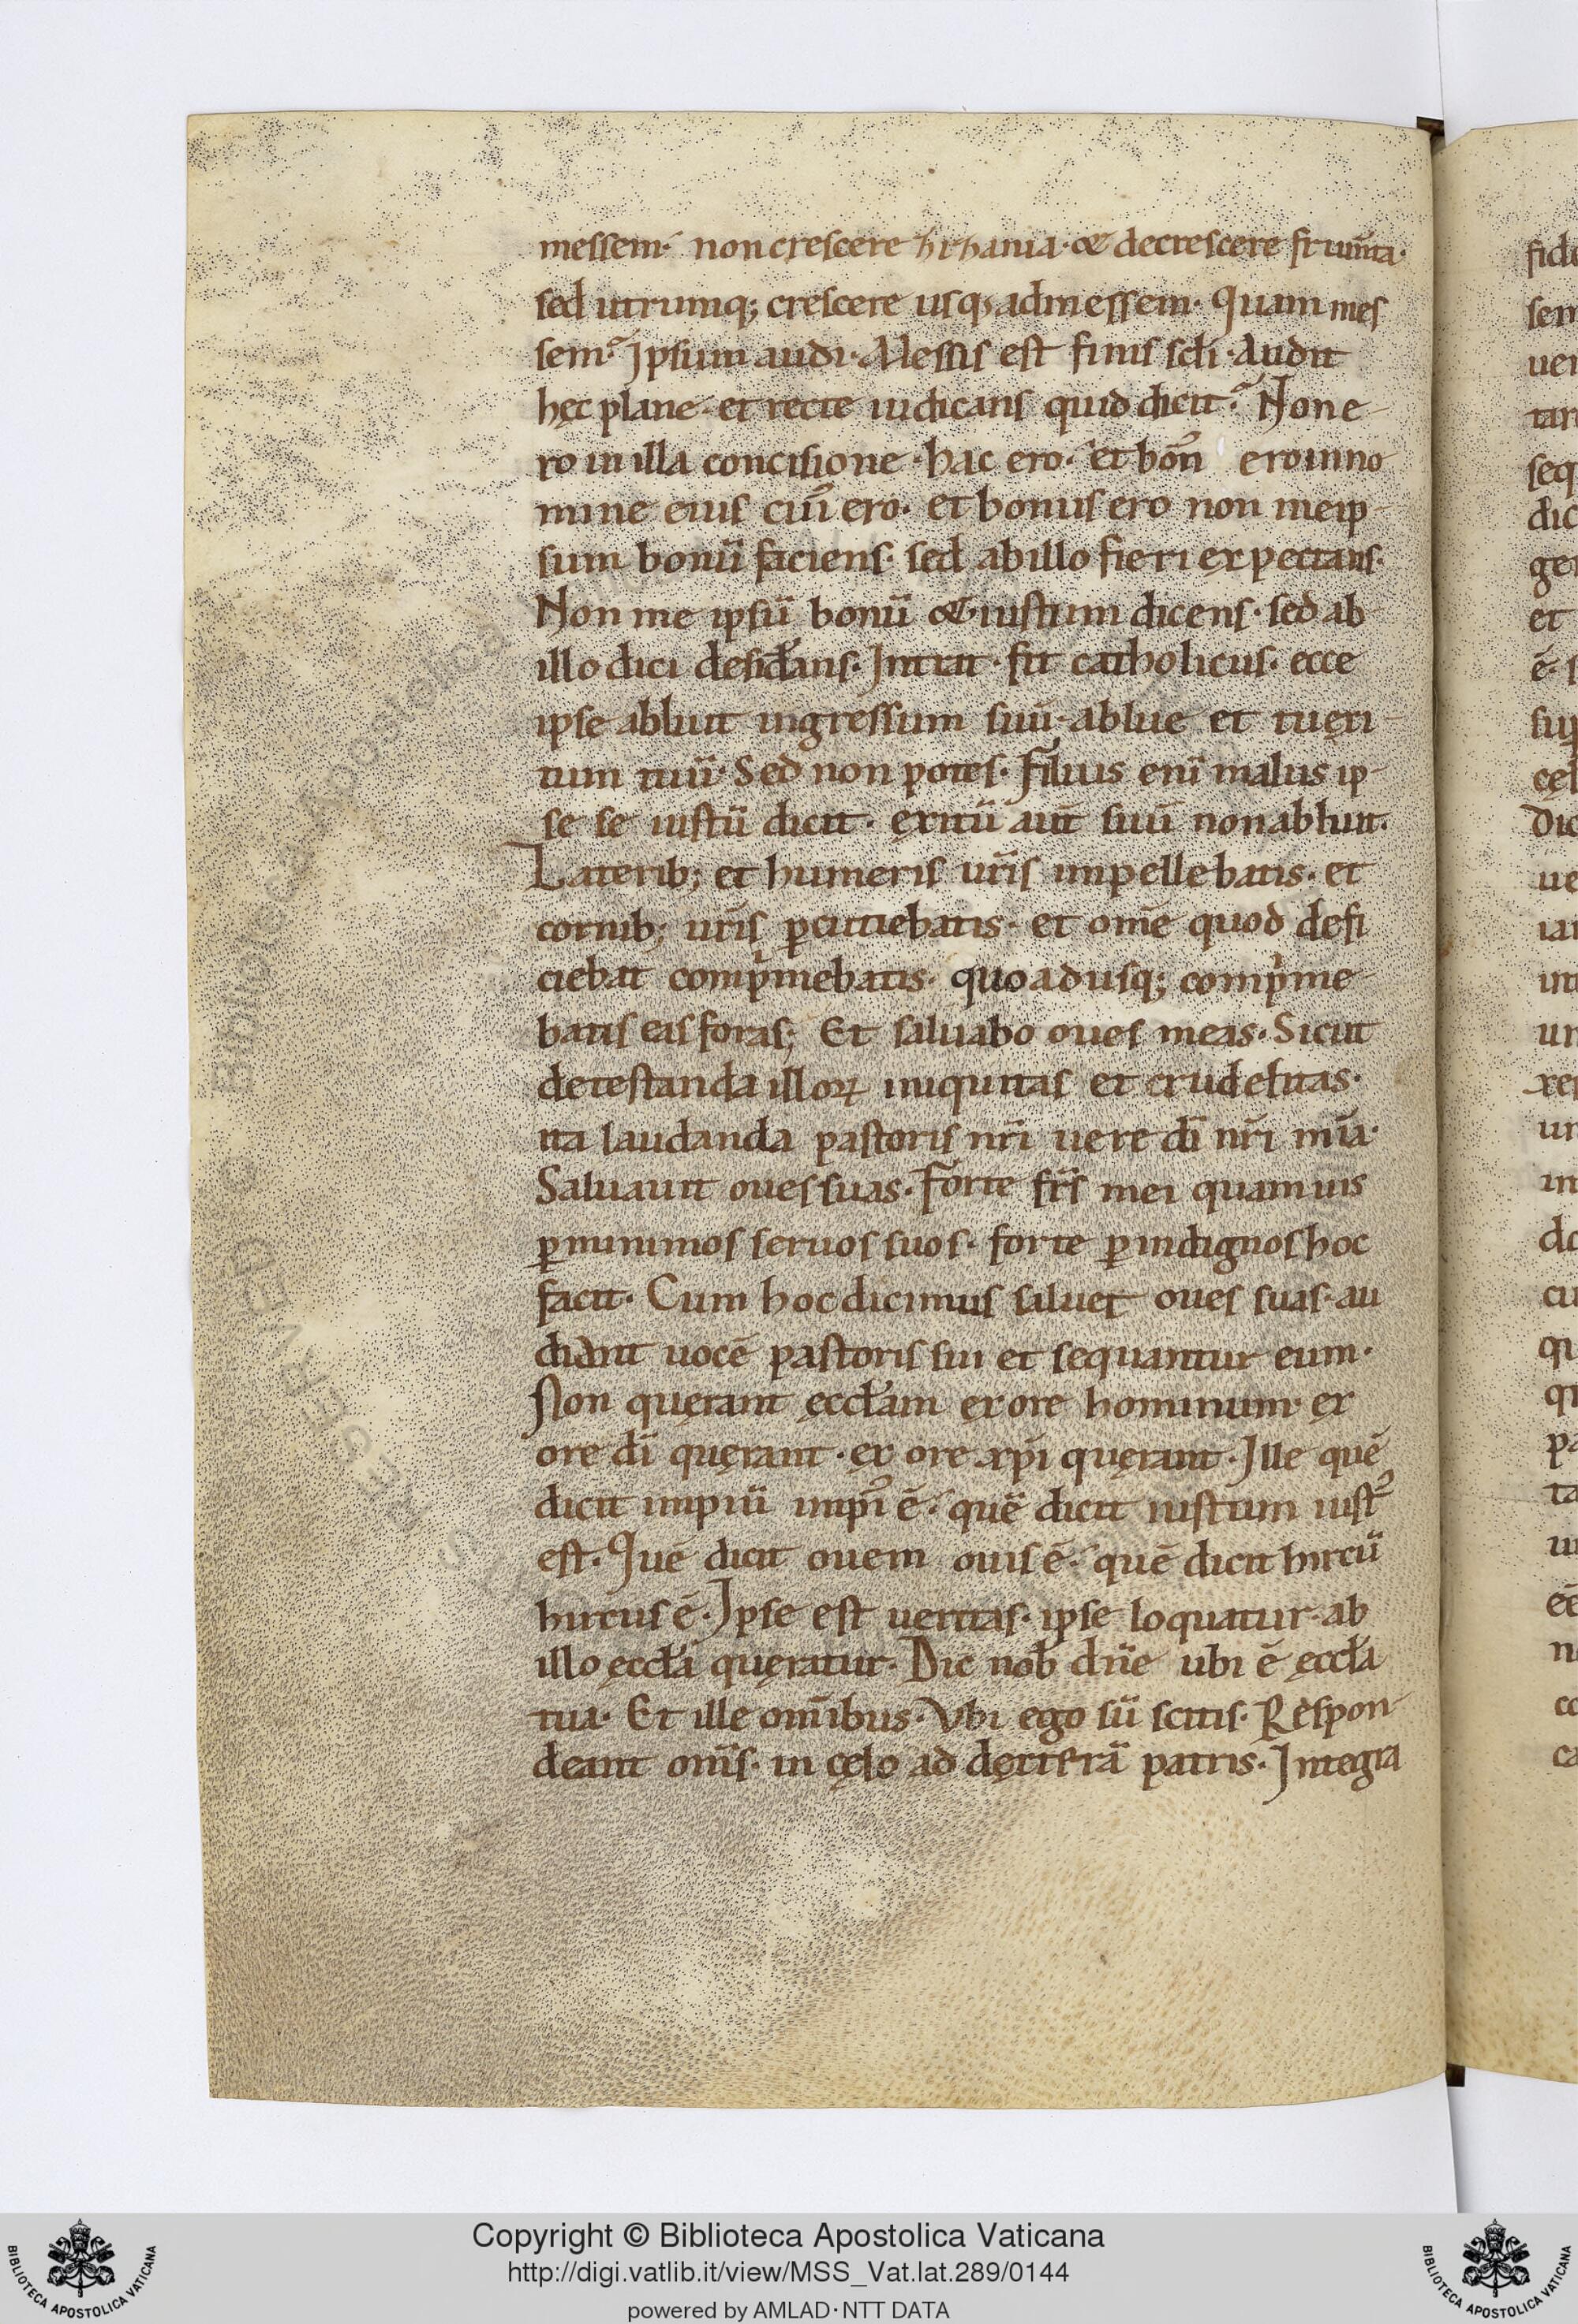 messem· non crescere ꜩiꜩania· & decrescere frum̅ta·
sed utrumq; crescere usq; ad messem· Quam mes
sem? Ipsum audi· Messis est finis scl̅i· Audit
hęc plane· et recte iudicans quid dicit? Non e
ro in illa concisione· hac ero· et bon᾽ ero in no
mine eius cui᾽ ero· et bonus ero non me ip
sum bonū faciens· sed ab illo fieri expectans·
Non me ipsū bonū & iustum dicens· sed ab
illo dici desid̅ans· Intrat· fit catholicus· ecce
ipse abluit ingressum suū· ablue et tu exi
tum tuū· Sed non potes· Filius enī malus ip
se se iustū dicit· exitū aūt suū non abluit·
Laterib; et humeris ur̅is impellebatis· et
cornib; ur̅is ꝑcutiebatis· et om̅e quod defi
ciebat compͥmebatis· quo ad usq; compͥme
batis eas foras; Et saluabo oues meas· Sicut
detestanda illoꝝ iniquitas et crudelitas·
ita laudanda pastoris nr̅i uere dī nr̅i mīa·
Saluauit oues suas· Forte fr̅s mei quamuis
ꝑ minimos seruos suos· forte ꝑ indignos hoc
facit· Cum hoc dicimus saluet oues suas· au
diant uocē pastoris sui et sequantur eum·
Non quęrant ęccl̅am ex ore hominum· ex
ore dī quęrant· ex ore xp̅i quęrant· Ille quē
dicit impiū impi᾽ ē· quē dicit iustum iust᾽
est· Quē dicit ouem ouis ē· quē dicit hircū
hircus ē· Ipse est ueritas· ipse loquatur· ab
illo ęccl̅a quęratur· Dic nob̅ dn̅e ubi ē ęccl̅a
tua· Et ille om̅ibus· Vbi ego sū scitis· Respon
deant om̅s· in cęlo ad dexterā patris· Integra
Copyright © Biblioteca Apostolica Vaticana
http://digi.vatlib.it/view/MSS_Vat.lat.289/0144
powered by AMLAD·NTT DATA
BIBLIOTECA APOSTOLICA VATICANA
BIBLIOTECA APOSTOLICA VATICANA